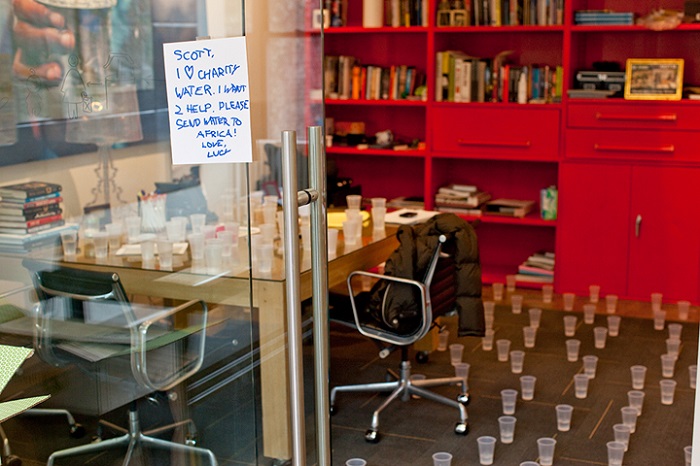 SCOTT,
I ♡ CHARITY
WATER. I WANT
2 HELP. PLEASE
SEND WATER TO
AFRICA!
LOVE,
LUCY